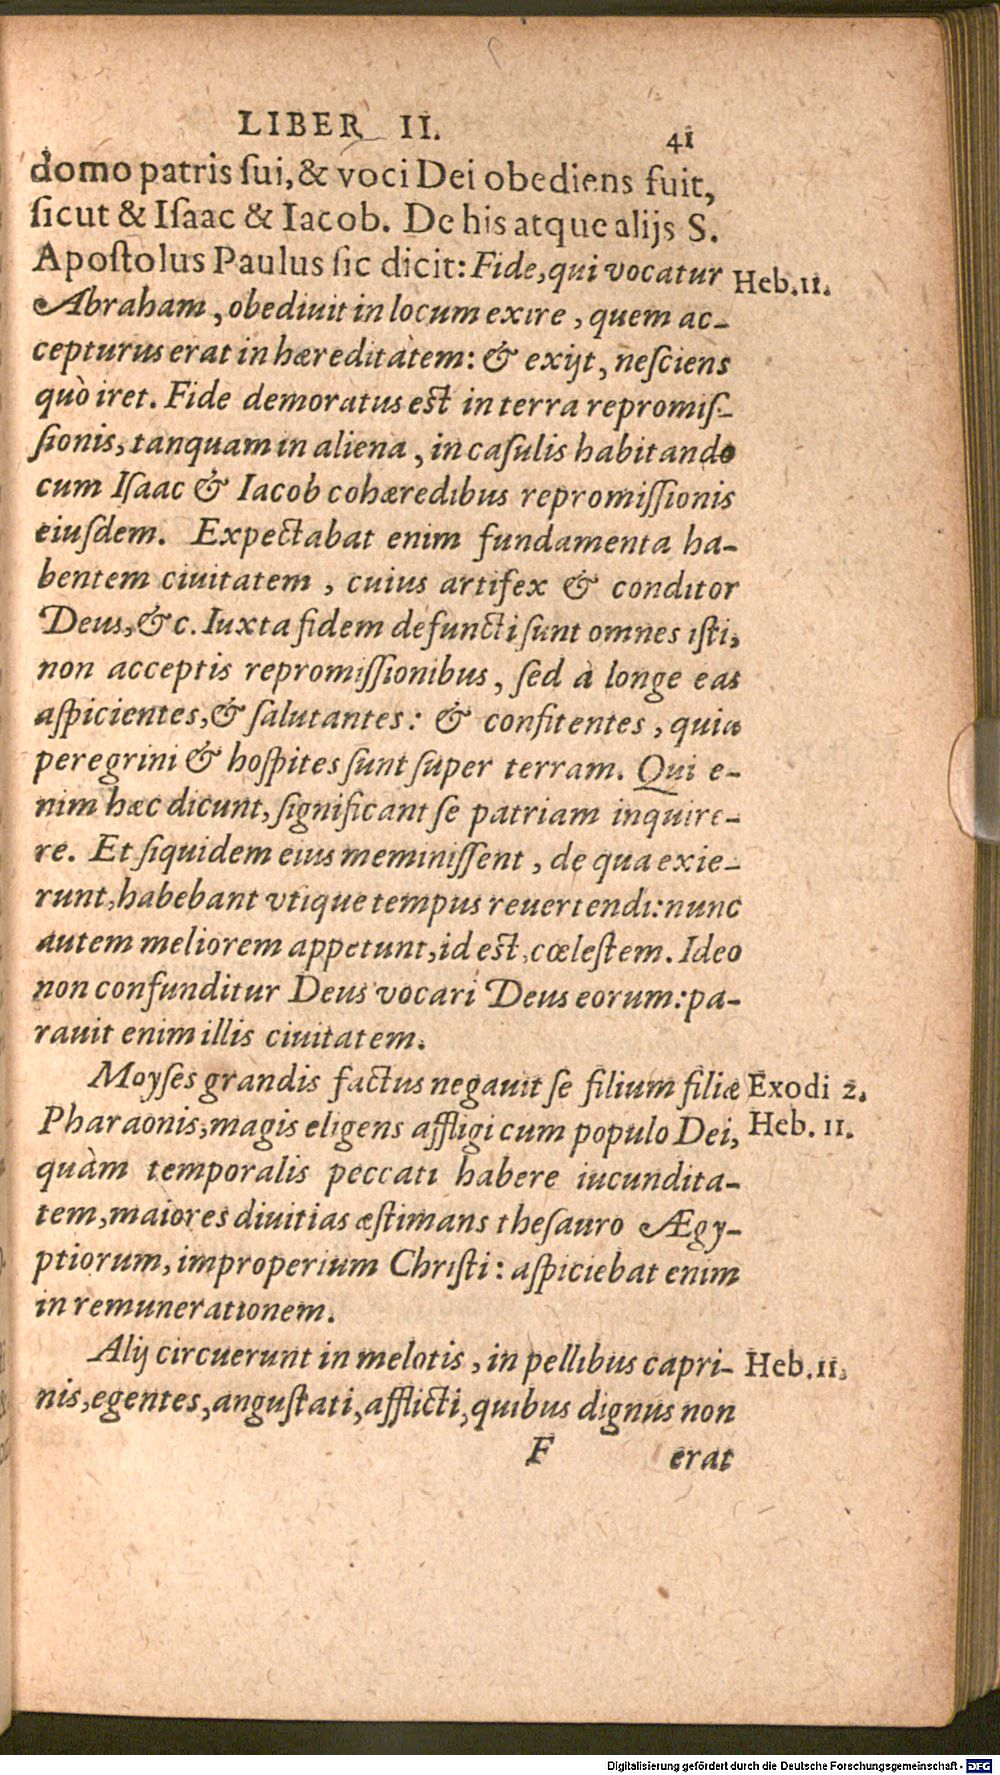 LIBER II. 41
domo patris ſui, & voci Dei obediens fuit,
ſicut & Iſaac & Iacob. De his atque alijs S.
Apoſtolus Paulus ſic dicit: Fide, qui vocatur Heb. 11.
Abraham, obediuit in locum exire, quem ac-
cepturus erat in hæreditàtem: & exijt, neſciens
quò iret. Fide demoratus eſt in terra repromiſ-
ſionis, tanquam in aliena, in caſulis habitando
cum Iſaac & Iacob cohæredibus repromiſſionis
eiuſdem. Expectabat enim fundamenta ha-
bentem ciuitatem, cuius artifex & conditor
Deus, & c. Iuxta fidem defuncti ſunt omnes iſti,
non acceptis repromiſſionibus, ſed à longe eas
aſpicientes, & ſalutantes: & confitentes, quia
peregrini & hoſpites ſunt ſuper terram. Qui e-
nim hæc dicunt, ſignificant ſe patriam inquire-
re. Et ſiquidem eius meminiſſent, de qua exie-
runt, habebant vtique tempus reuertendi: nunc
autem meliorem appetunt, id eſt, cœleſtem. Ideo
non confunditur Deus vocari Deus eorum: pa-
rauit enim illis ciuitatem.
Moyſes grandis factus negauit ſe filium filiæ Exodi 2.
Pharaonis, magis eligens affligi cum populo Dei, Heb. 11.
quàm temporalis peccati habere iucundita-
tem, maiores diuitias æſtimans theſauro Ægy-
ptiorum, improperium Chriſti: aſpiciebat enim
in remunerationem.
Alij circuerunt in melotis, in pellibus capri- Heb. 11.
nis, egentes, anguſtati, afflicti, quibus dignus non
F erat
Digitalisierung gefördert durch die Deutsche Forschungsgemeinschaft - DFG